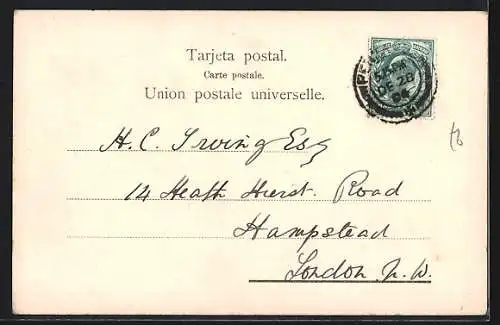 Tarjeta postal.
Carte postale.
Union postale universelle.
H. C. Irving Esq
14 Heath Hurst Road
Hampstead
London N. W.
DE 28